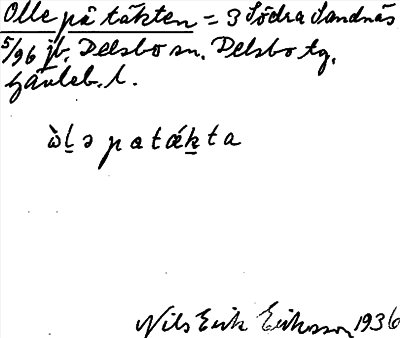 Olle på täkten = 3 Södra Sandnäs
5/96 jb. Delsbo sn. Delsbo tg.
Gävleb. l.
ὼl̲ə patǽk̲ta
Nils Erik Eriksson 1936